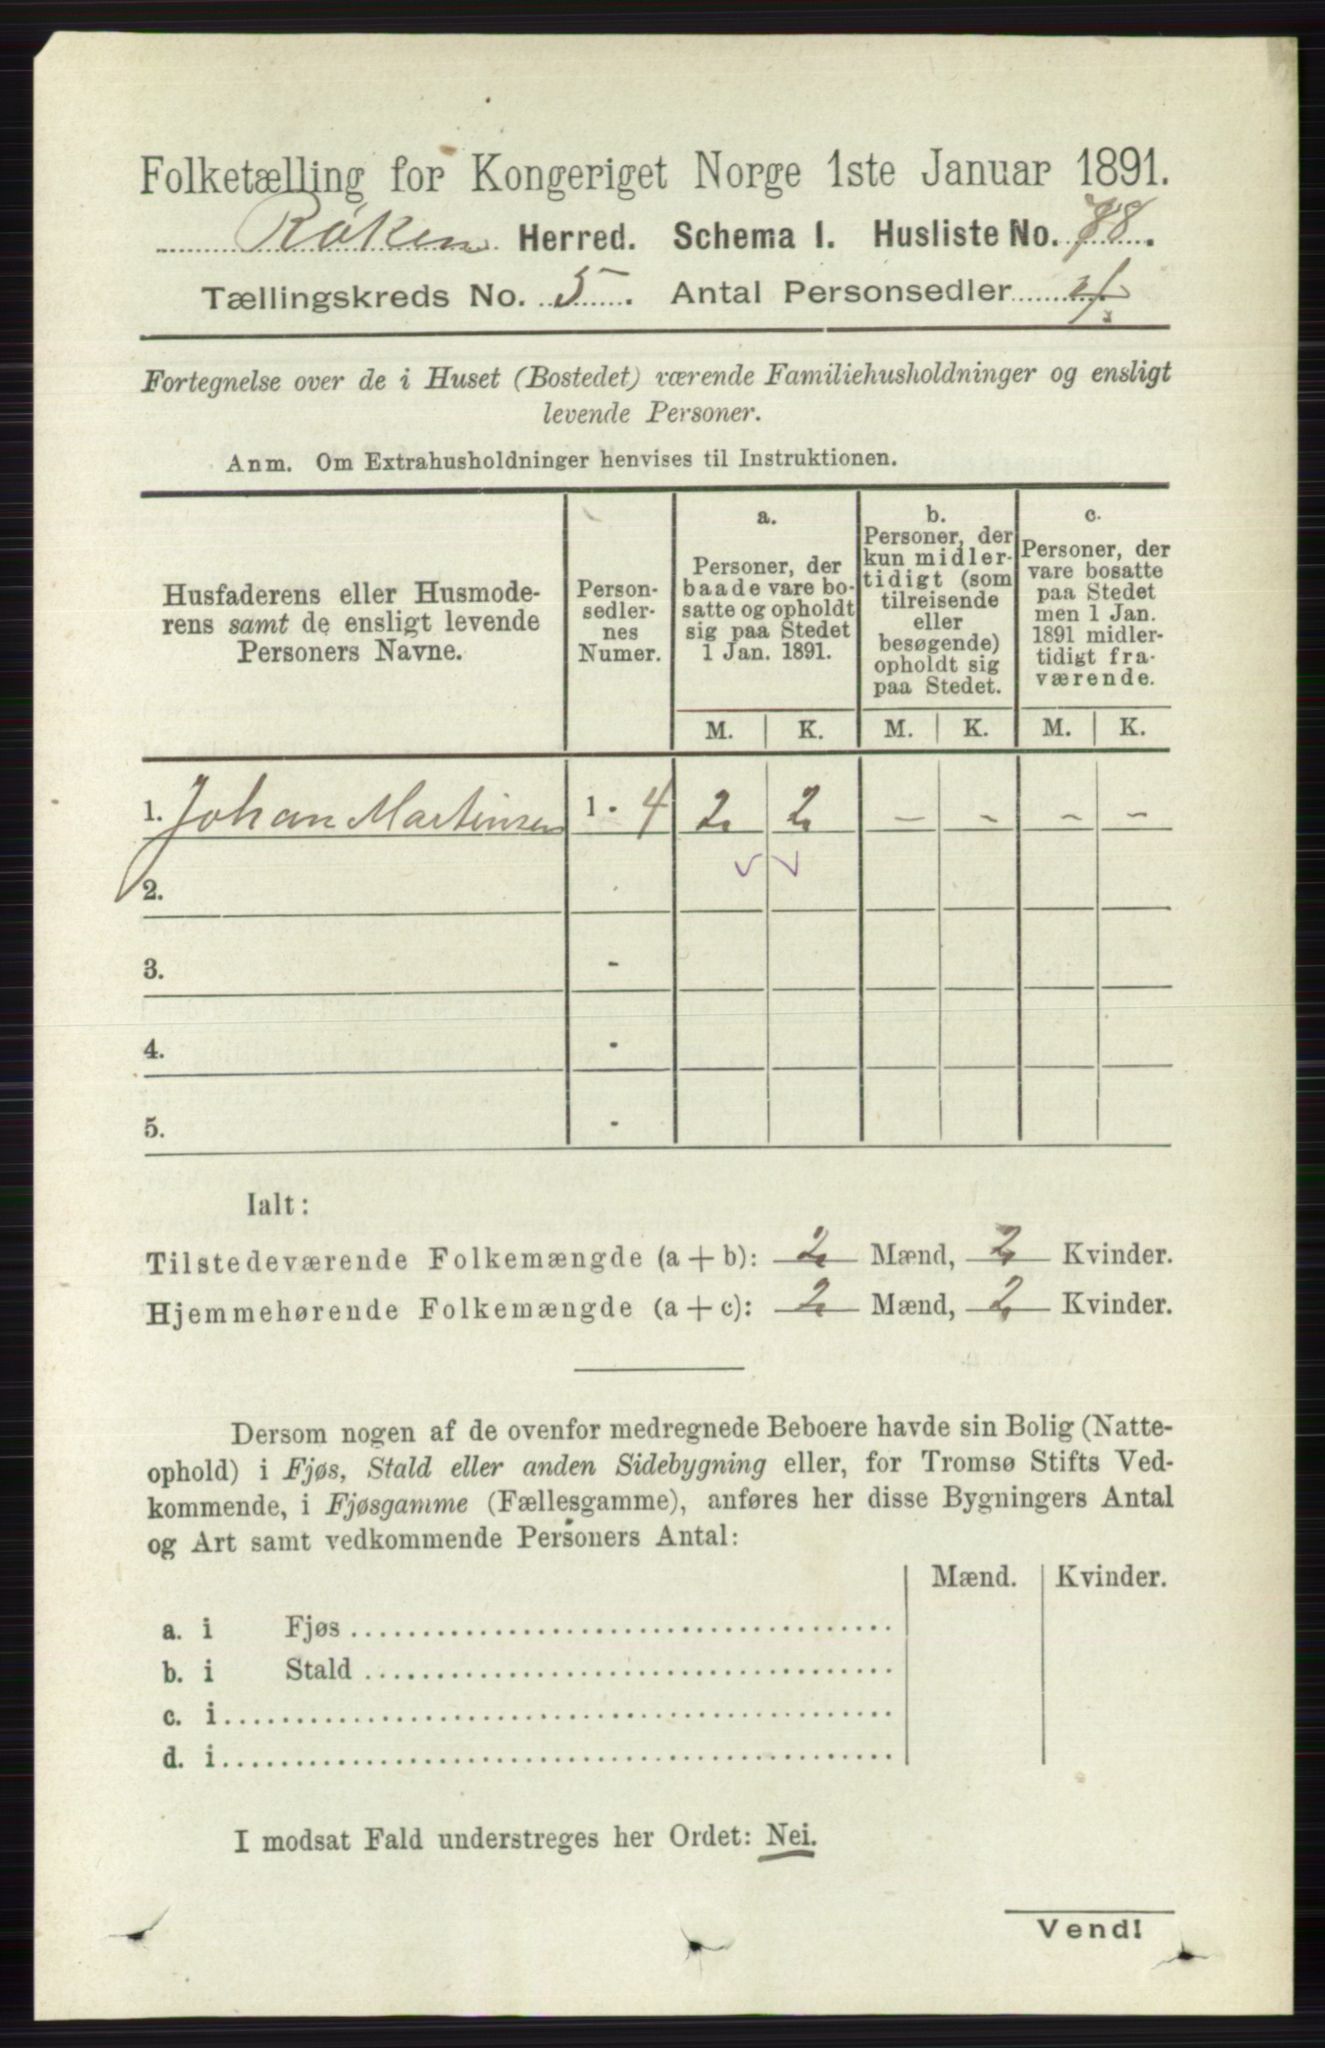 Folketælling for Kongeriget Norge 1ste Januar 1891.
Røken Herred. Schema I. Husliste No. 88.
Tællingskreds No. 5. Antal Personsedler 4.
Fortegnelse over de i Huset (Bostedet) værende Familiehusholdninger og ensligt
levende Personer.
Anm. Om Extrahusholdninger henvises til Instruktionen.
Husfaderens eller Husmode-
rens samt de ensligt levende
Personers Navne.
Person-
sedler-
nes
Numer.
a.
Personer, der
baade vare bo-
satte og opholdt
sig paa Stedet
1 Jan. 1891.
b.
Personer, der
kun midler-
tidigt (som
tilreisende
eller
besøgende)
opholdt sig
paa Stedet.
c.
Personer, der
vare bosatte
paa Stedet
men 1 Jan.
1891 midler-
tidigt fra-
værende.
M. K. M. K. M. K.
1. Johan Martinsen 1 - 4 2 2 - - - -
2. -
3. -
4. -
5. -
Ialt:
Tilstedeværende Folkemængde (a + b): 2 Mænd, 2 Kvinder.
Hjemmehørende Folkemængde (a + c): 2 Mænd, 2 Kvinder.
Dersom nogen af de ovenfor medregnede Beboere havde sin Bolig (Natte-
ophold) i Fjøs, Stald eller anden Sidebygning eller, for Tromsø Stifts Ved-
kommende, i Fjøsgamme (Fællesgamme), anføres her disse Bygningers Antal
og Art samt vedkommende Personers Antal:
Mænd. Kvinder.
a. i Fjøs
b. i Stald
c. i
d. i
I modsat Fald understreges her Ordet: Nei.
Vend!